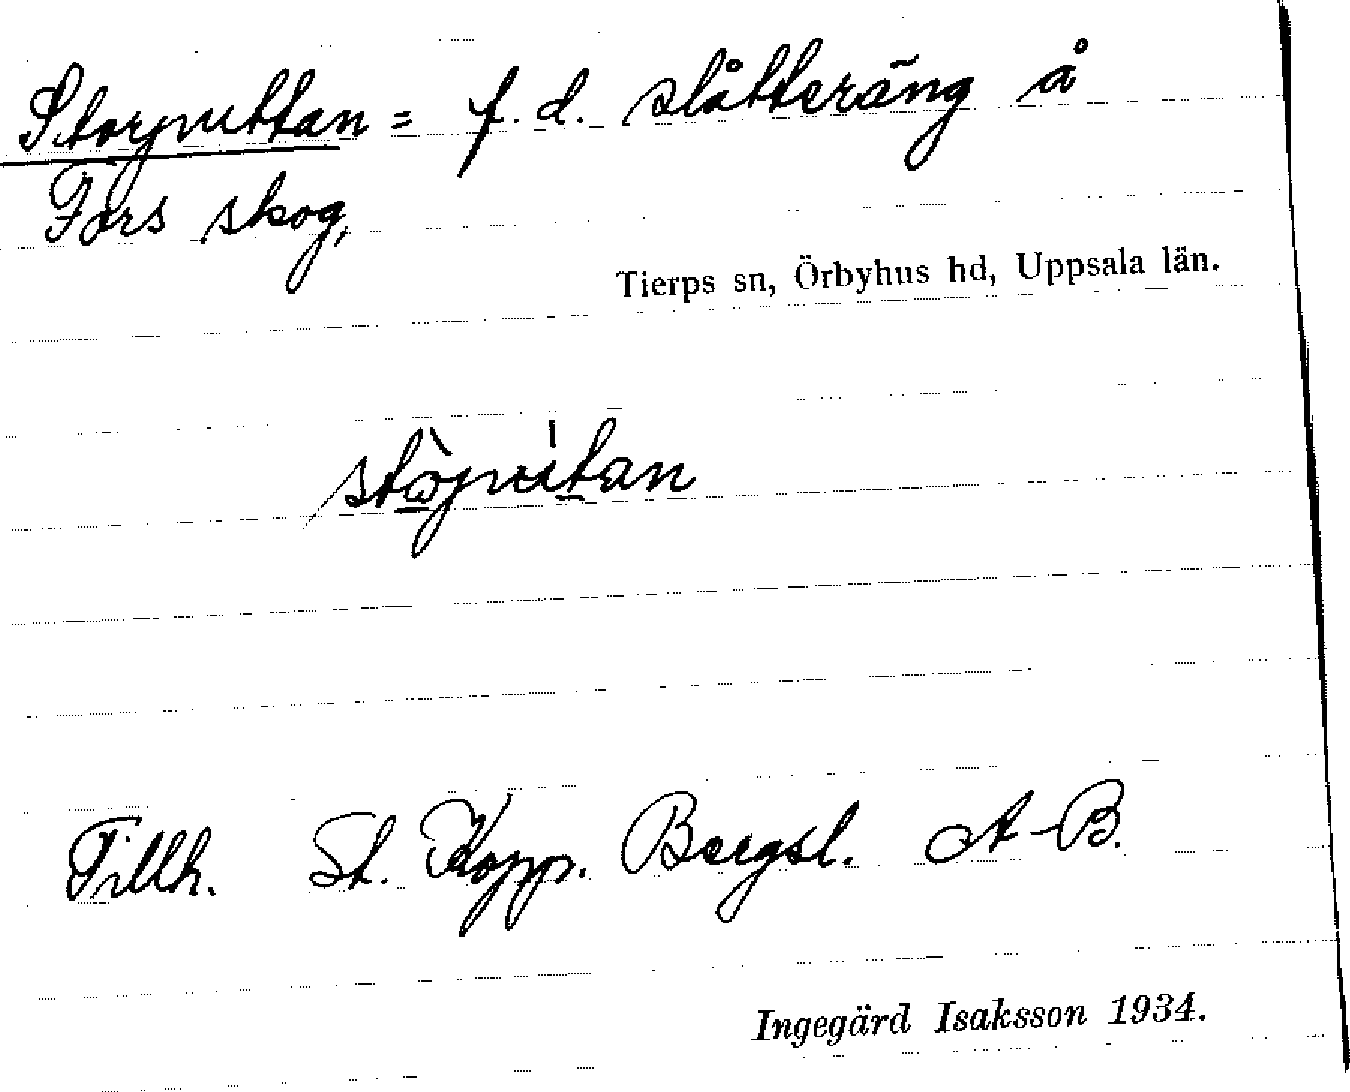 Storputtan = f.d. slåtteräng å
Fors skog,
Tierps sn, Örbyhus hd, Uppsala län.
Tillh. St. Kopp. Bergsl. A-B.
Ingegärd Isaksson 1934.